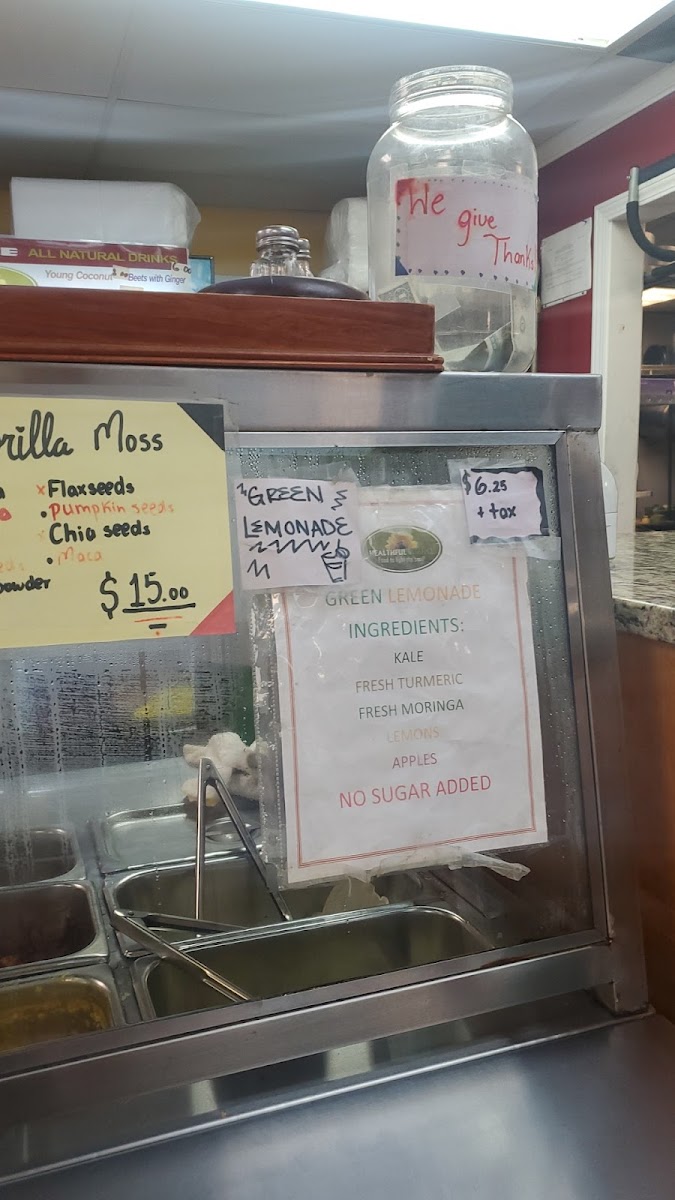 We
give
Thanks
ALL NATURAL DRINKS
Young Coconut Beets with Ginger
rilla Moss
Flaxseeds
Pumpkin seeds
Chia seeds
Maca
owder
$15.00
GREEN
LEMONADE
$6.25
+ tax
HEALTHFUL
GREEN LEMONADE
INGREDIENTS:
KALE
FRESH TURMERIC
FRESH MORINGA
LEMONS
APPLES
NO SUGAR ADDED